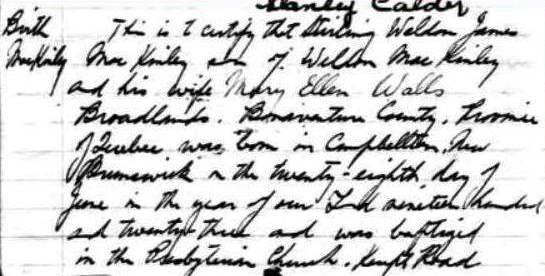 Stanley Calder
Birth This is to certify that Stirling Weldon James
MacKinley MacKinley son of Weldon MacKinley
and his wife Mary Ellen Walls
Broadlands, Bonaventure County, Province
of Quebec was born in Campbellton, New
Brunswick on the twenty-eighth day of
June in the year of our Lord nineteen hundred
and twenty-three and was baptized
in the Presbyterian Church, Kempt Road